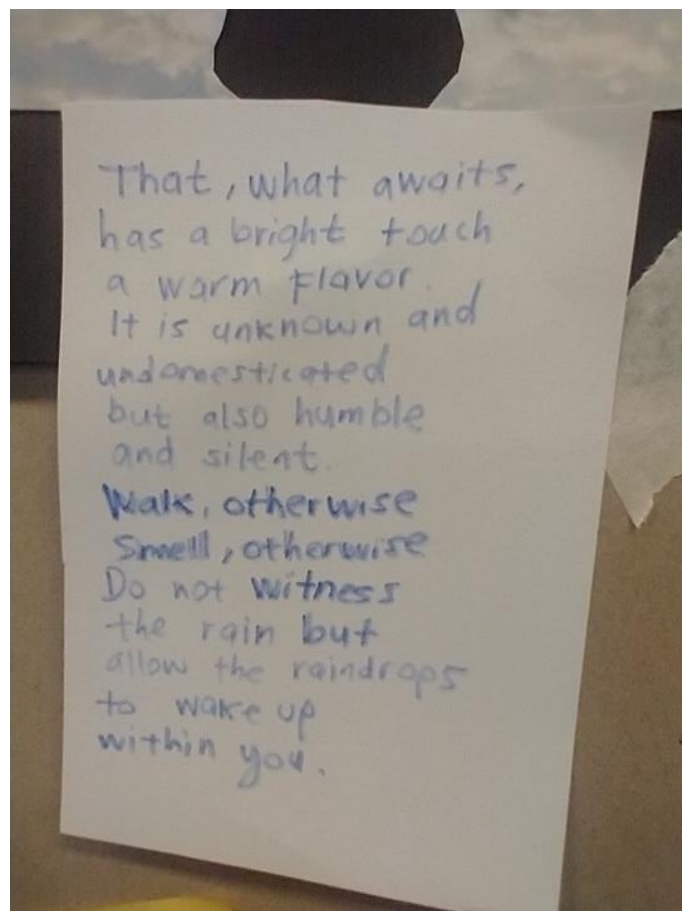 That, what awaits,
has a bright touch
a warm flavor.
It is unknown and
undomesticated
but also humble
and silent.
Walk, otherwise
Smell, otherwise
Do not witness
the rain but
allow the raindrops
to wake up
within you.